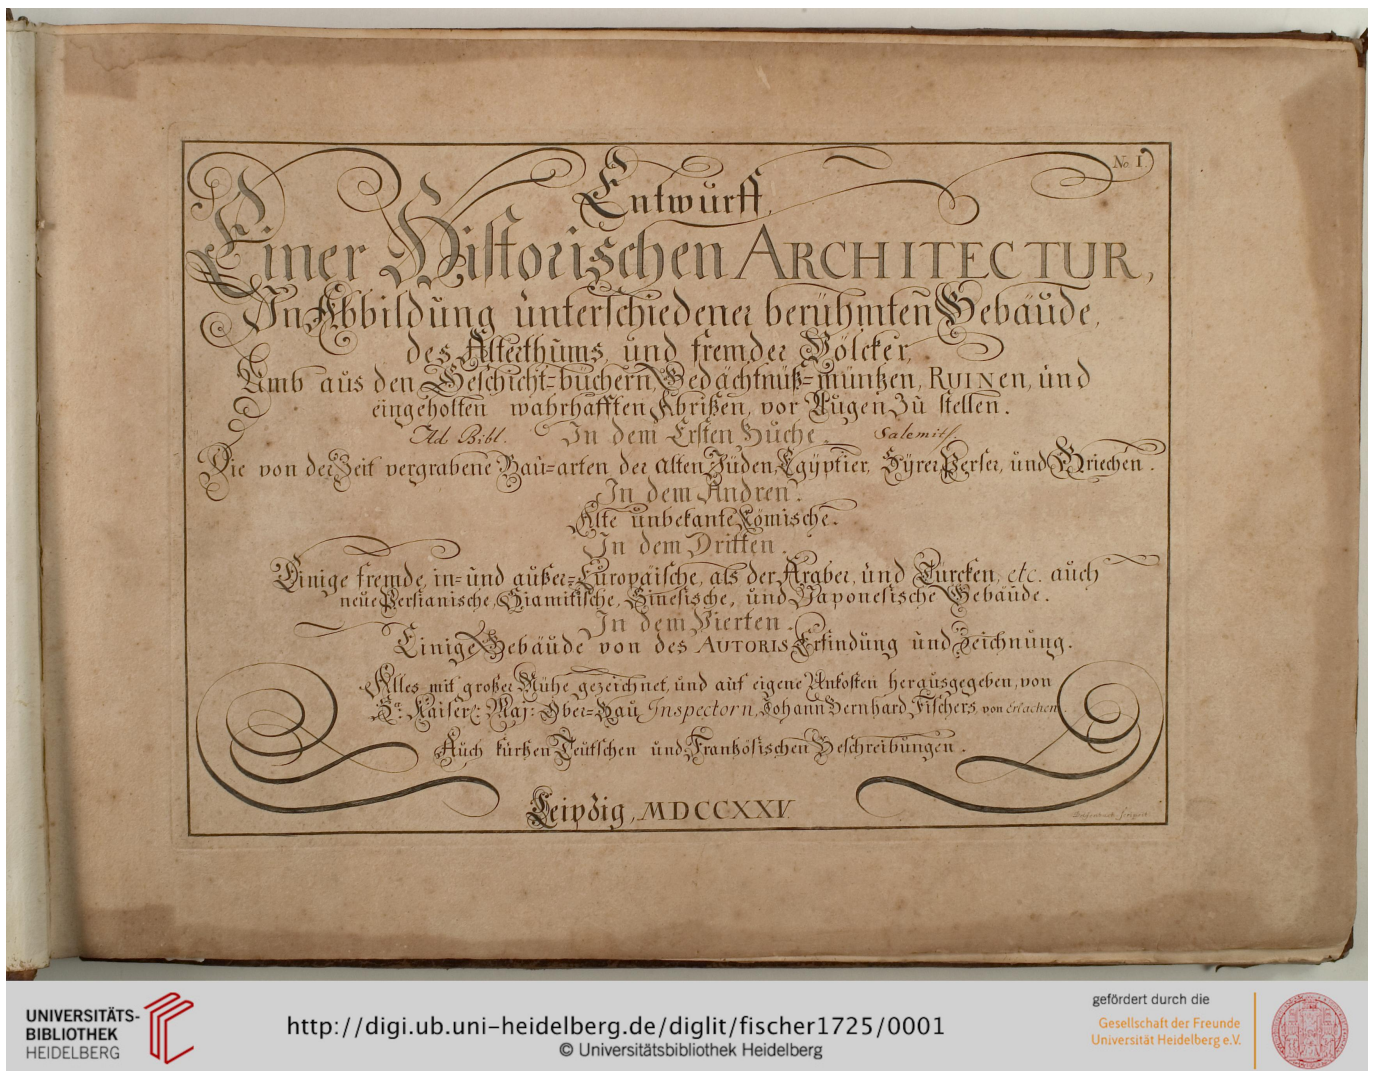 No. I.
Entwürff,
Einer Historischen ARCHITECTUR,
In Abbildung unterschiedener berühmten Gebäude,
des Alterthums, und fremder Völcker,
Umb aus den Geschicht-büchern, Gedächtnüß-müntzen, RUINen, und
eingeholten wahrhafften Abrißen, vor Augen zu stellen.
Ad Bibl. Salemit.
In dem Ersten Buche.
Die von der Zeit vergrabene Bau-arten der alten Jüden, Egyptier, Syrer, Perser, und Griechen.
In dem Andren.
Alte unbekante Römische.
In dem Dritten.
Einige fremde, in- und außer-Europäische, als der Araber, und Türcken, etc. auch
neüe Persianische, Siamitische, Sinesische, und Japonesische Gebäude.
In dem Vierten.
Einige Gebäude von des AUTORIS Erfindung und Zeichnung.
Alles mit großer Mühe gezeichnet, und auf eigene Unkosten herausgegeben, von
Sr. Kaiserl. Maj: Ober-Bau Inspectorn, Johann Bernhard Fischers, von Erlachen.
Auch kurtzen Teutschen und Frantzösischen Beschreibungen.
Leipzig, MDCCXXV.
UNIVERSITÄTS-
BIBLIOTHEK
HEIDELBERG
http://digi.ub.uni-heidelberg.de/diglit/fischer1725/0001
© Universitätsbibliothek Heidelberg
gefördert durch die
Gesellschaft der Freunde
Universität Heidelberg e.V.